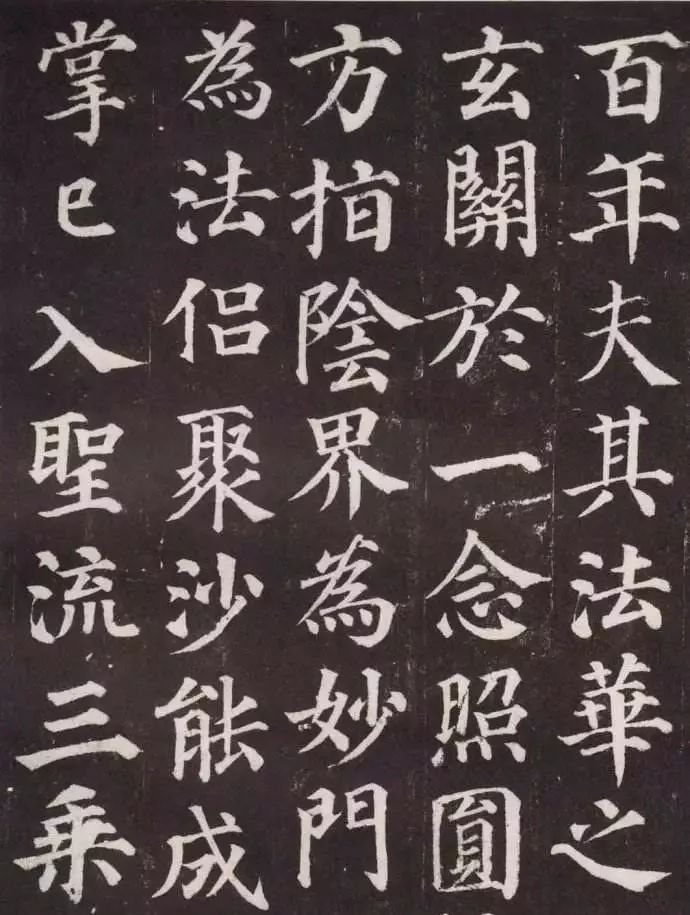 百年夫其法華之
玄關於一念照圓
方指陰界為妙門
為法侶聚沙能成
掌已入聖流三乘